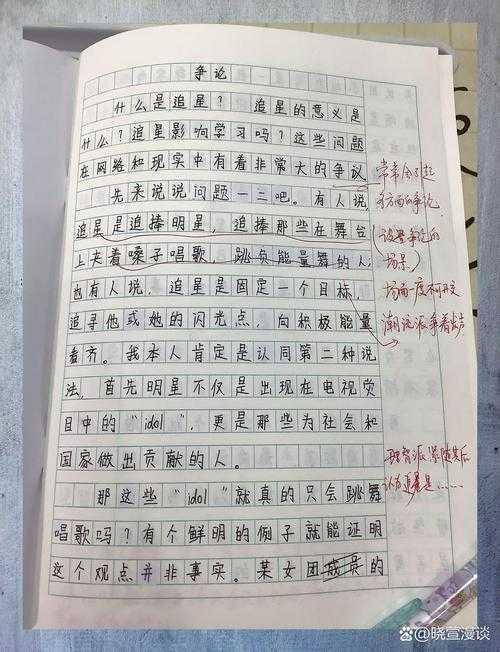 争论
什么是追星？ 追星的意义是
什么？追星影响学习吗？这些问题
在网络和现实中有着非常大的争议
先来说说问题一二吧。有人说，
追星是追捧明星，追捧那些在舞台
上夹着嗓子唱歌，跳负能量舞的人；
也有人说，追星是固定一个目标，
追寻他或她的闪光点，向积极能量
看齐。我本人肯定是认同第二种说
法，首先明星不仅是出现在电视炎
目中的“idol”，更是那些为社会和
国家做出贡献的人。
那这些“idol”就真的只会跳舞
唱歌吗？有个鲜明的例子就能证明
这个观点并非事实。某女团成员的
常常会引起
多方面的争论
（设置争论的
场景）
场面一度不可开交
潮流派争着发声
理智派紧随其后
认为更是……
@晓萱漫谈